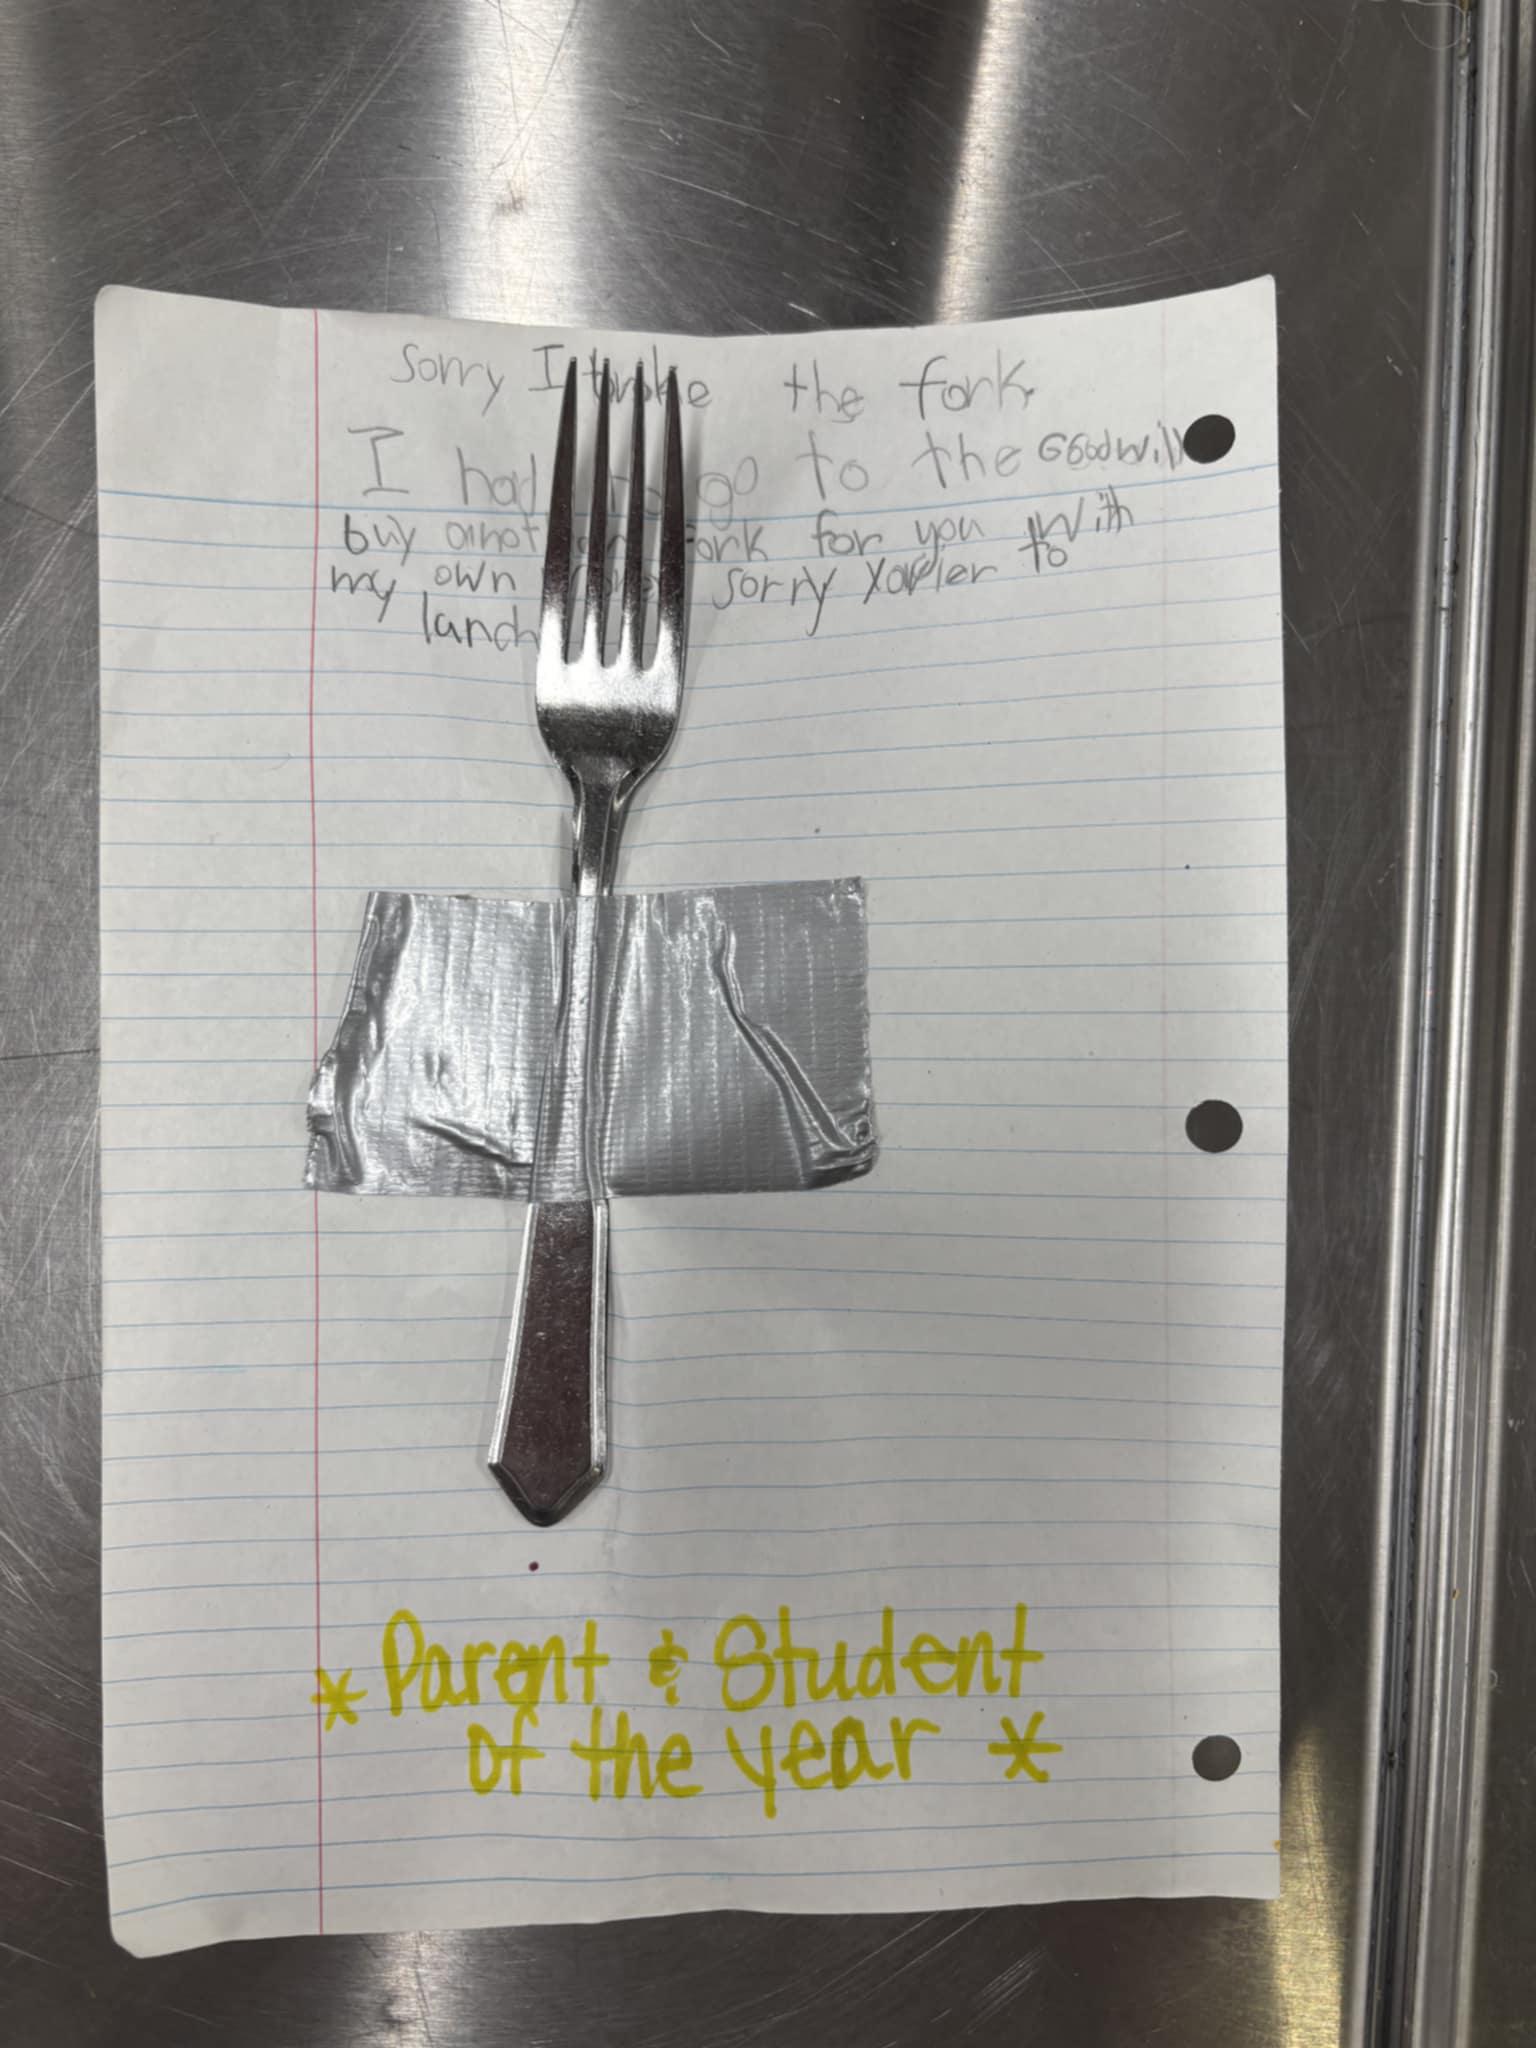 Sorry I broke the fork.
I had to go to the Goodwill
buy another fork for you with
my own sorry Xavier to
my lanch
* Parent & Student
of the year *